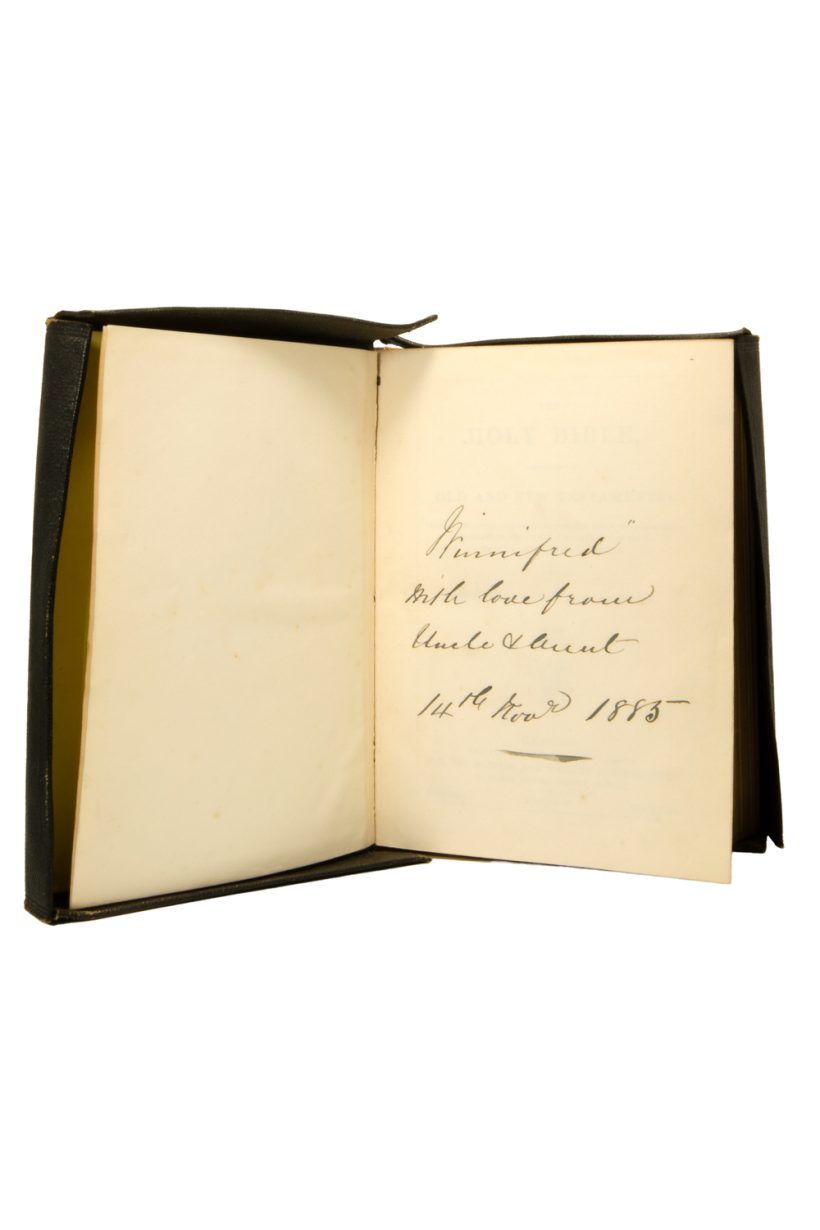 THE
HOLY BIBLE,
OLD AND NEW TESTAMENTS
Winnifred"
With love from
Uncle & Aunt
14th Novr 1885